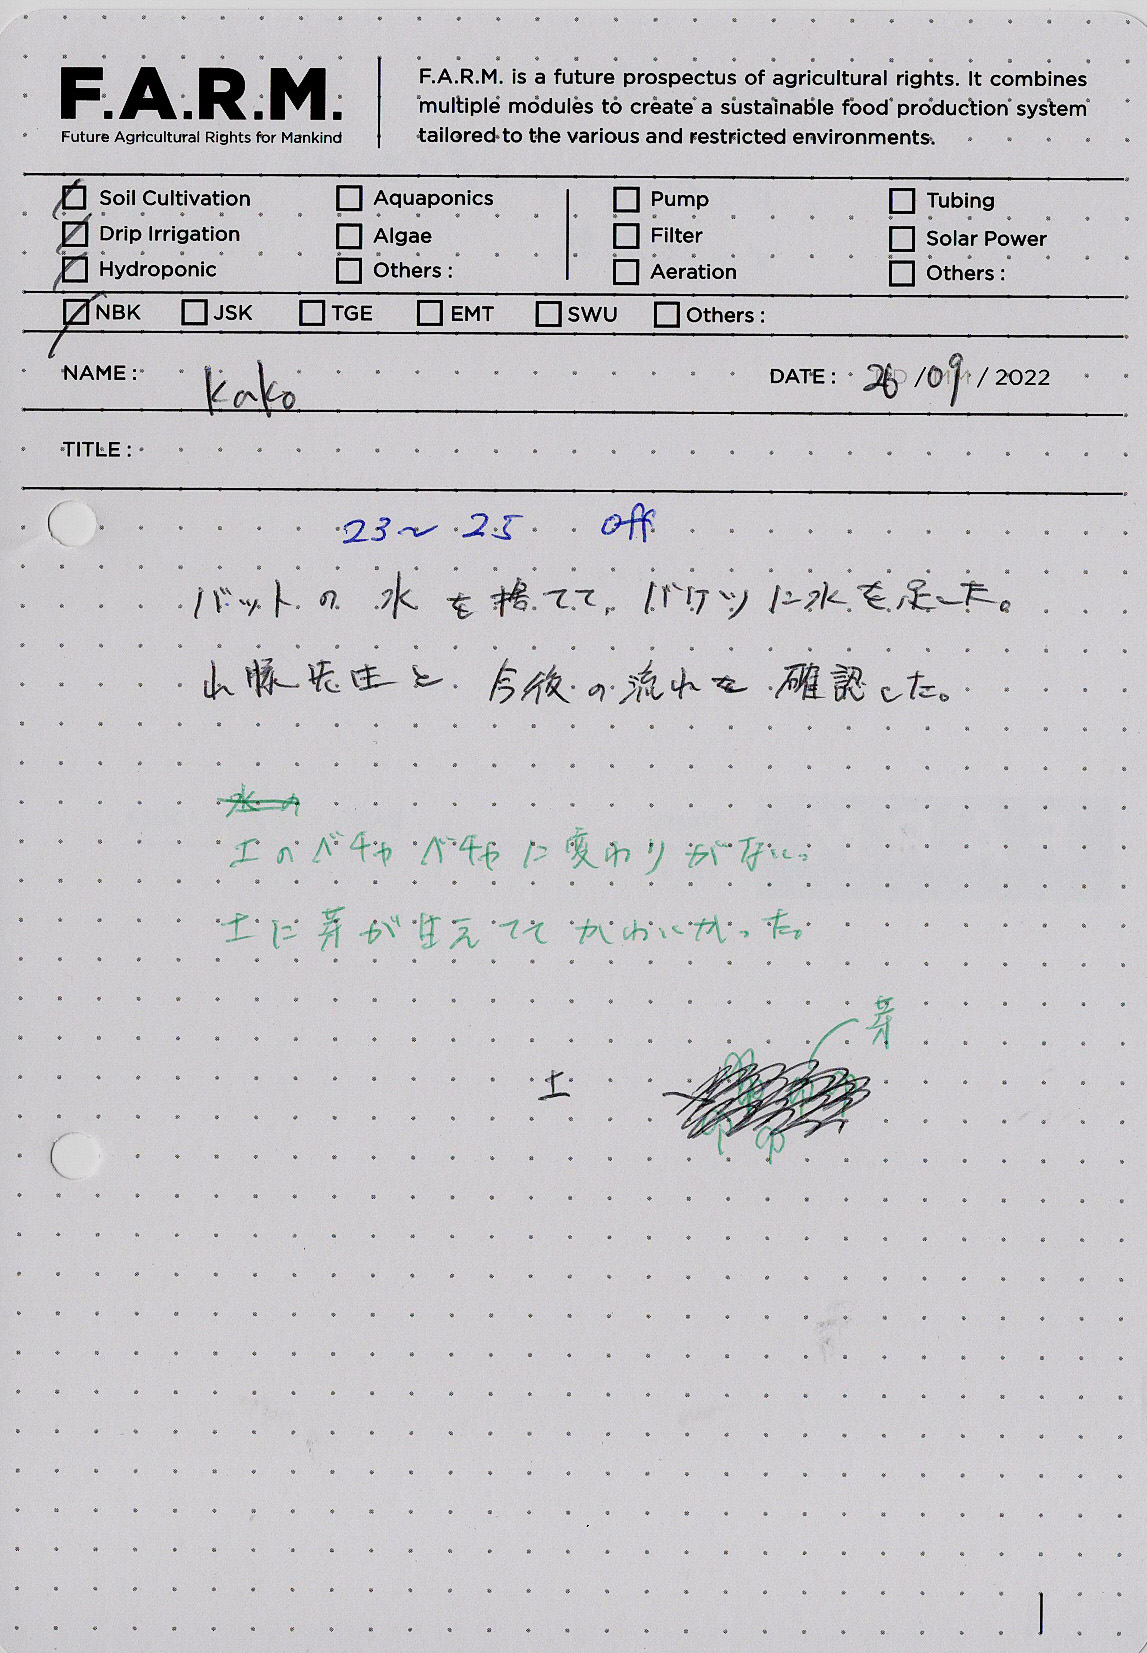 F.A.R.M.
Future Agricultural Rights for Mankind
F.A.R.M. is a future prospectus of agricultural rights. It combines
multiple modules to create a sustainable food production system
tailored to the various and restricted environments.
Soil Cultivation Aquaponics Pump Tubing
Drip Irrigation Algae Filter Solar Power
Hydroponic Others : Aeration Others :
NBK JSK TGE EMT SWU Others :
NAME : kako DATE : 26/09/2022
TITLE :
23〜25 off
バットの水を捨てて、バケツに水を足した。
先生と今後の流れを確認した。
水の
土のベチャベチャに変わりがない。
土に芽が生えててかわいかった。
芽
土